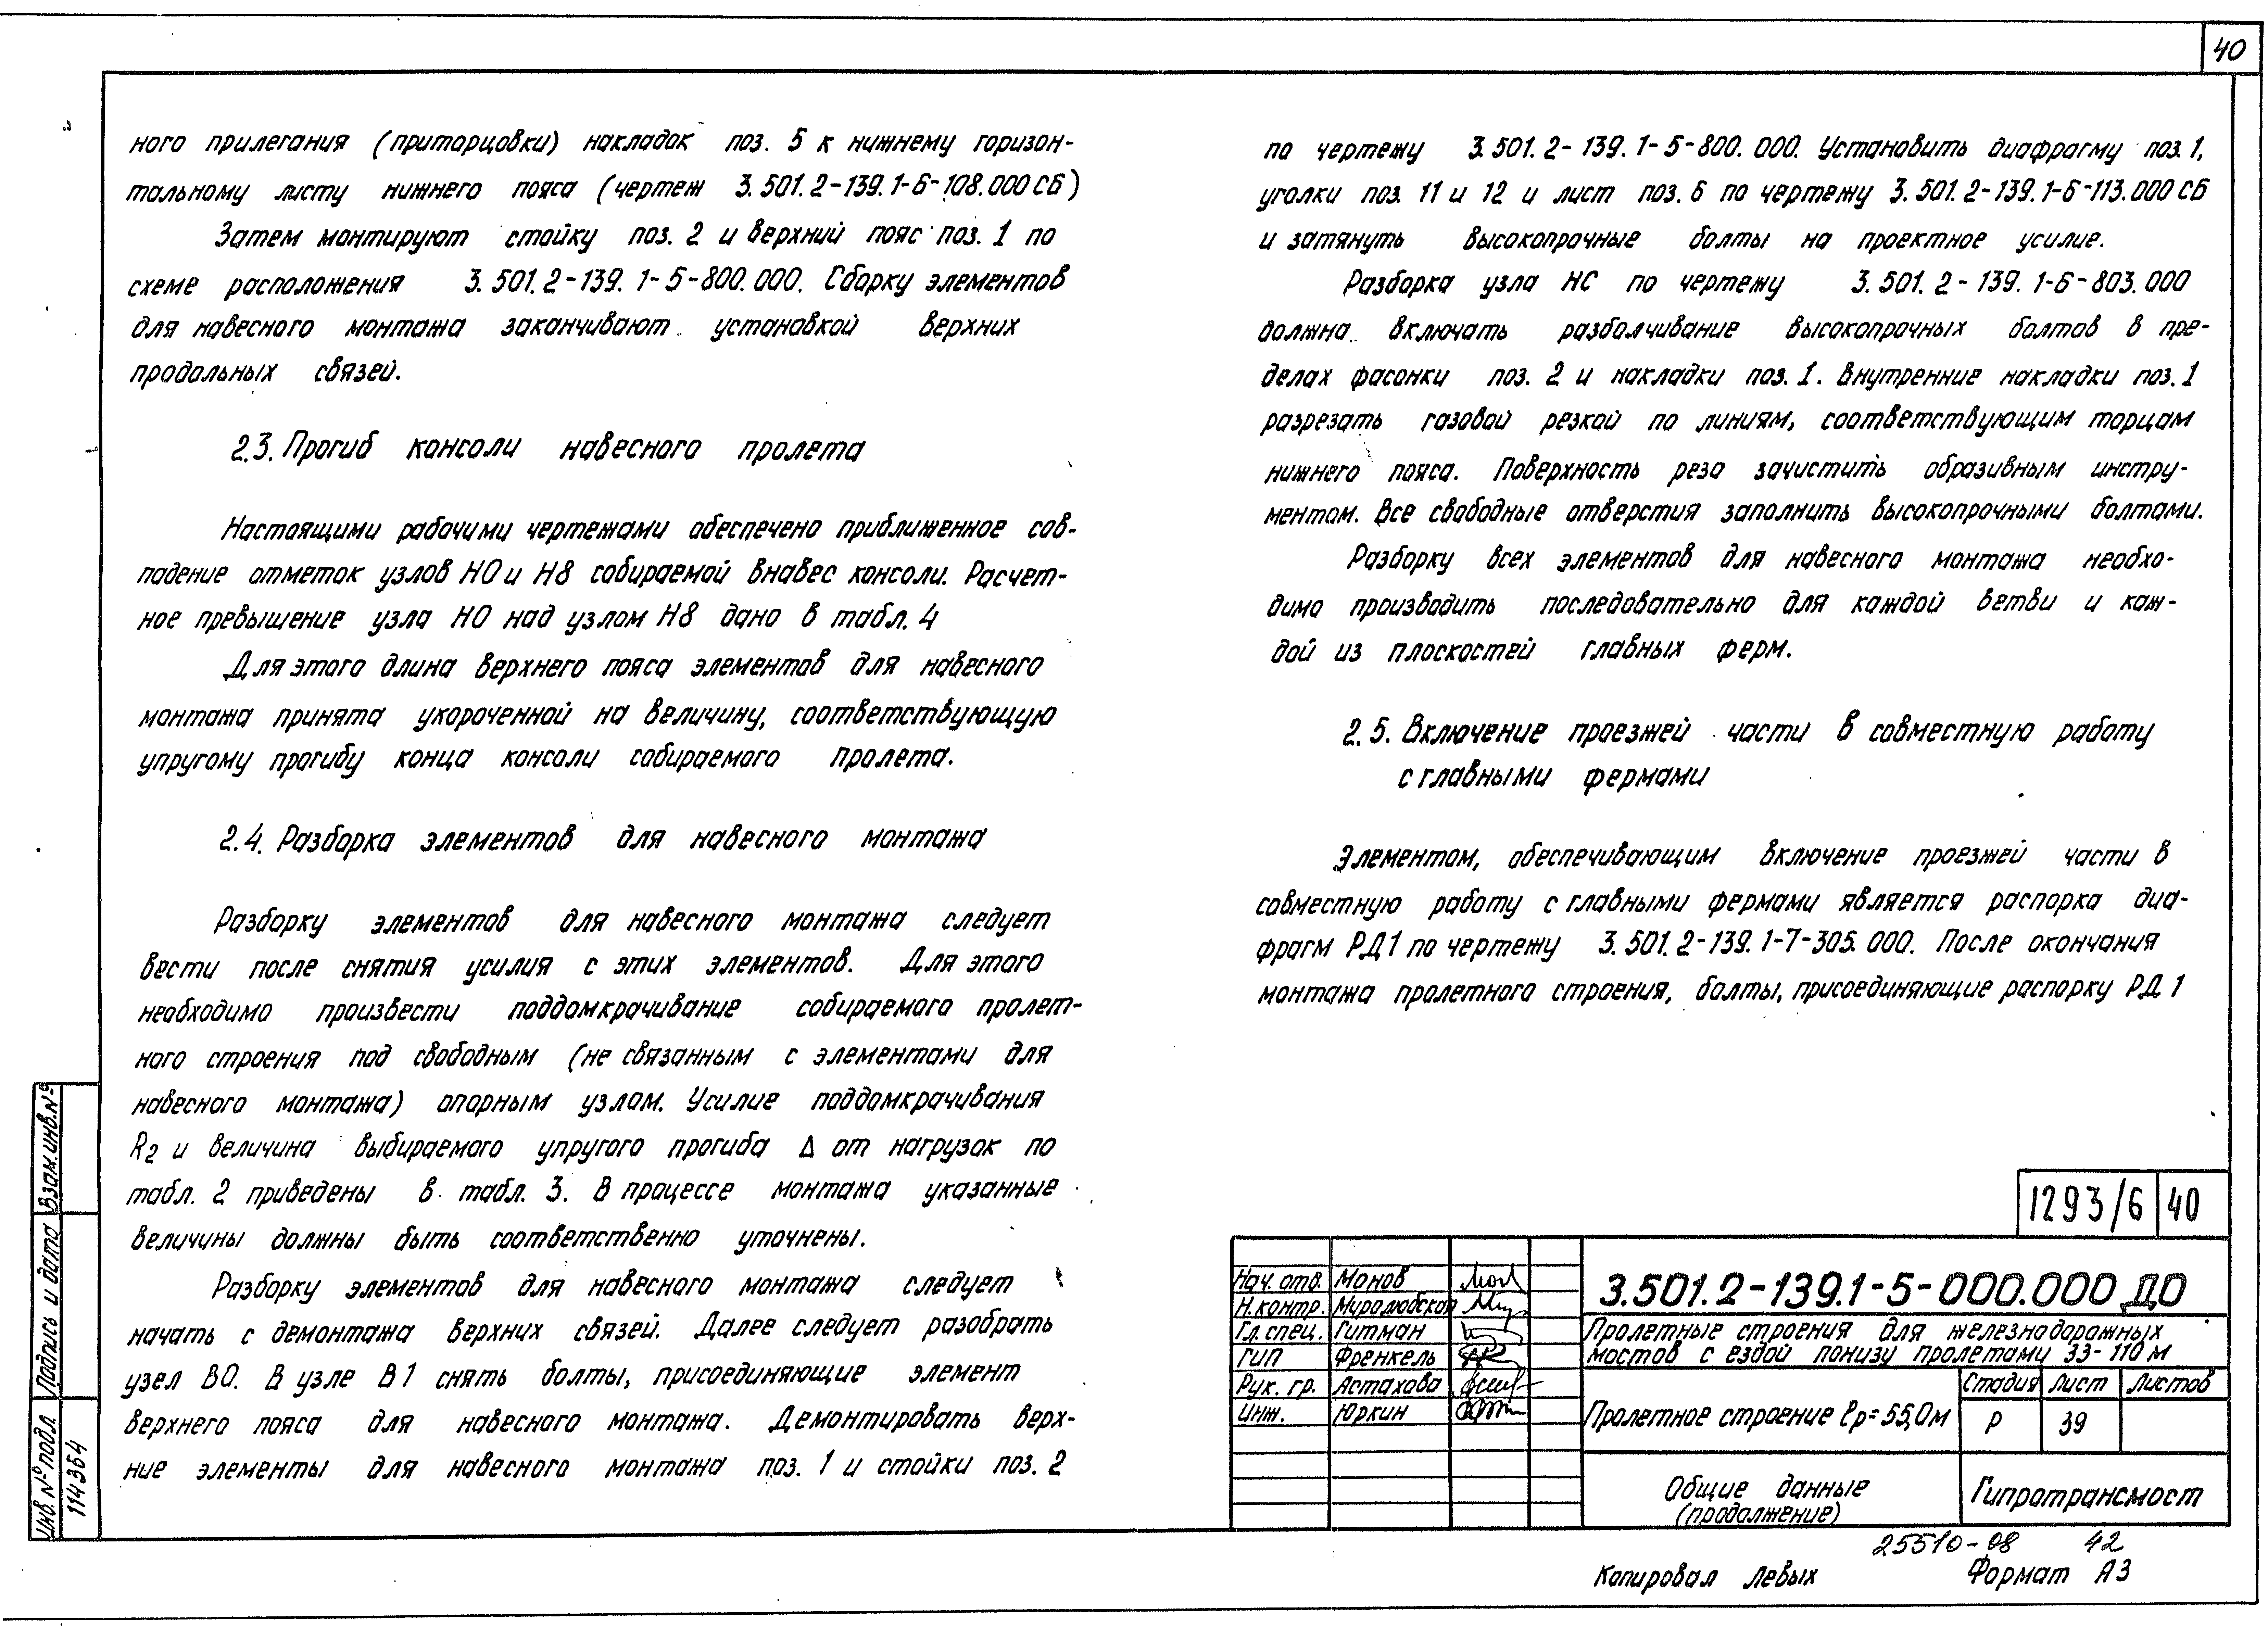 40
ного прилегания (приторцовки) накладок поз. 5 к нижнему горизон-
тальному листу нижнего пояса (чертеж 3.501.2-139.1-6-108.000 СБ)
Затем монтируют стойку поз. 2 и верхний пояс поз. 1 по
схеме расположения 3.501.2-139.1-5-800.000. Сборку элементов
для навесного монтажа заканчивают установкой верхних
продольных связей.
2.3. Прогиб консоли навесного пролета
Настоящими рабочими чертежами обеспечено приближенное сов-
падение отметок узлов Н0 и Н8 собираемой внавес консоли. Расчет-
ное превышение узла Н0 над узлом Н8 дано в табл. 4
Для этого длина верхнего пояса элементов для навесного
монтажа принята укороченной на величину, соответствующую
упругому прогибу конца консоли собираемого пролета.
2.4. Разборка элементов для навесного монтажа
Разборку элементов для навесного монтажа следует
вести после снятия усилия с этих элементов. Для этого
необходимо произвести поддомкрачивание собираемого пролет-
ного строения под свободным (не связанным с элементами для
навесного монтажа) опорным узлом. Усилие поддомкрачивания
R2 и величина выбираемого упругого прогиба Δ от нагрузок по
табл. 2 приведены в табл. 3. В процессе монтажа указанные
величины должны быть соответственно уточнены.
Разборку элементов для навесного монтажа следует
начать с демонтажа верхних связей. Далее следует разобрать
узел В0. В узле В1 снять болты, присоединяющие элемент
верхнего пояса для навесного монтажа. Демонтировать верх-
ние элементы для навесного монтажа поз. 1 и стойки поз. 2
по чертежу 3.501.2-139.1-5-800.000. Установить диафрагму поз. 1,
уголки поз. 11 и 12 и лист поз. 6 по чертежу 3.501.2-139.1-6-113.000 СБ
и затянуть высокопрочные болты на проектное усилие.
Разборка узла НС по чертежу 3.501.2-139.1-6-803.000
должна включать разболчивание высокопрочных болтов в пре-
делах фасонки поз. 2 и накладки поз. 1. Внутренние накладки поз. 1
разрезать газовой резкой по линиям, соответствующим торцам
нижнего пояса. Поверхность реза зачистить образивным инстру-
ментом. Все свободные отверстия заполнить высокопрочными болтами.
Разборку всех элементов для навесного монтажа необхо-
димо производить последовательно для каждой ветви и каж-
дой из плоскостей главных ферм.
2.5. Включение проезжей части в совместную работу
с главными фермами
Элементом, обеспечивающим включение проезжей части в
совместную работу с главными фермами является распорка диа-
фрагм РД1 по чертежу 3.501.2-139.1-7-305.000. После окончания
монтажа пролетного строения, болты, присоединяющие распорку РД1
1293/6 40
Нач. отд. Монов
Н.контр. Муралюбская
Гл. спец. Гитман
ГИП Френкель
Рук. гр. Астахова
Инж. Юркин
3.501.2-139.1-5-000.000 ДО
Пролетные строения для железнодорожных
мостов с ездой понизу пролетами 33-110 м
Пролетное строение lр=55,0м
Стадия Лист Листов
Р 39
Общие данные
(продолжение)
Гипротрансмост
25510-08 42
Копировал Левых Формат А3
Взам.инв.№
Подпись и дата
Инв. № подл.
114364